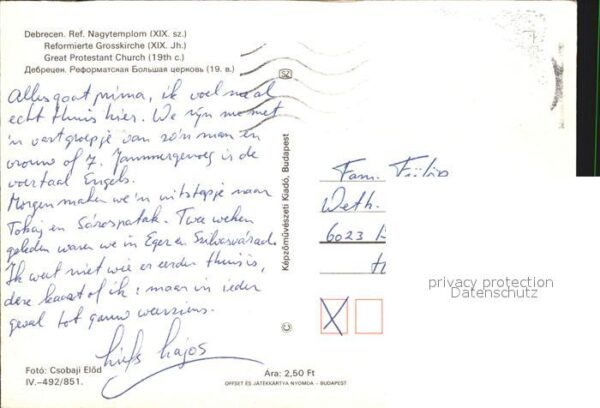 Debrecen. Ref. Nagytemplom (XIX. sz.)
Reformierte Grosskirche (XIX. Jh.)
Great Protestant Church (19th c.)
Дебрецен. Реформатская Большая церковь (19. в.)
Alles gaat prima, ik voel me al
echt thuis hier. We zijn nu met
'n vast groepje van zo'n man en
vrouw of 7. Jammergenoeg is de
voertaal Engels.
Morgen maken we 'n uitstapje naar
Tokaj en Sárospatak. Twee weken
geleden waren we in Eger en Szilvásvárad.
Ik weet niet wie er eerder thuis is,
deze kaart of ik: maar in ieder
geval tot gauw weerziens.
liefs Lajos
Fotó: Csobaji Előd
IV.–492/851.
Ára: 2,50 Ft
OFFSET ÉS JÁTÉKKÁRTYA NYOMDA – BUDAPEST
SZ
Képzőművészeti Kiadó, Budapest
©
Fam.
Weth.
6023
privacy protection
Datenschutz